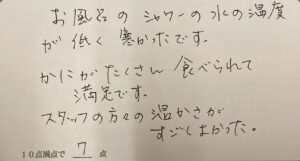 お風呂のシャワーの水の温度
が低く寒かったです。
かにがたくさん食べられて
満足です。
スタッフの方々の温かさが
すごくよかった。
10点満点で 7 点